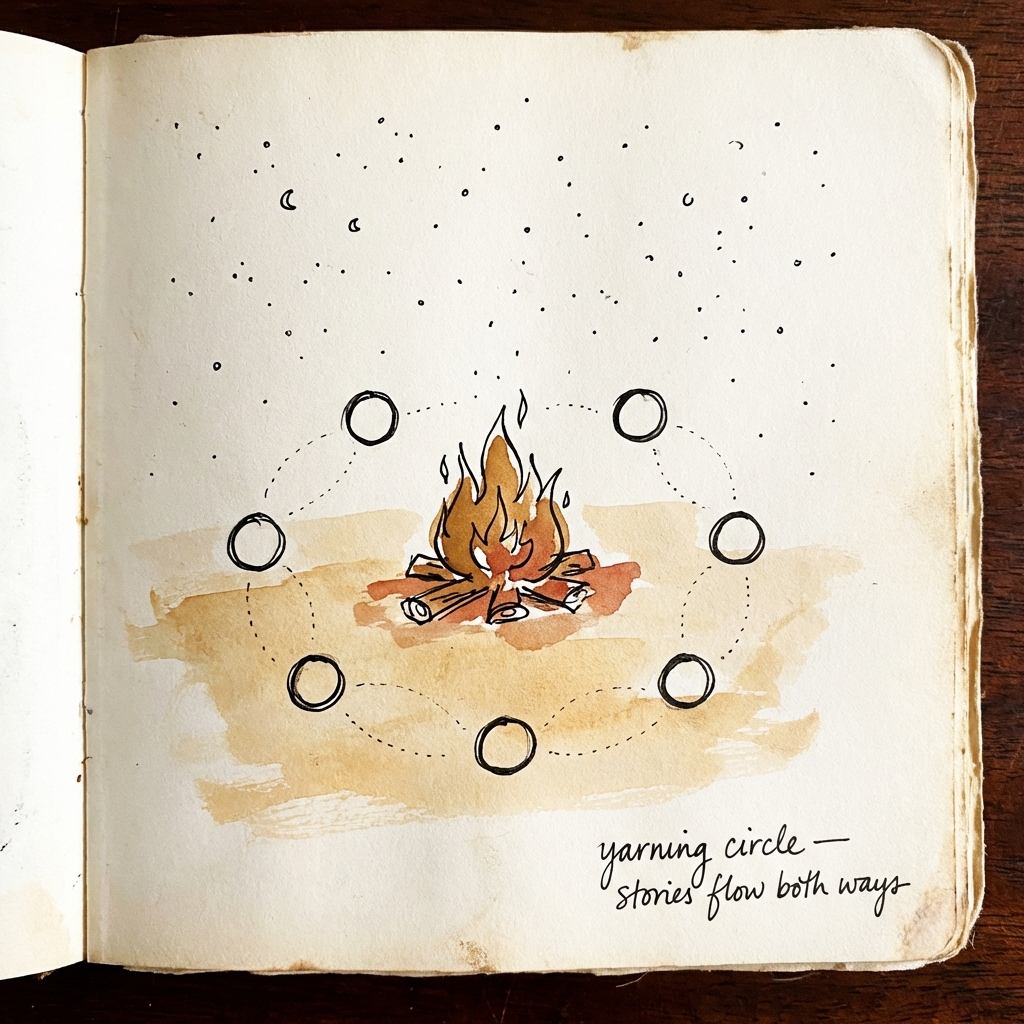 yarning circle —
stories flow both ways